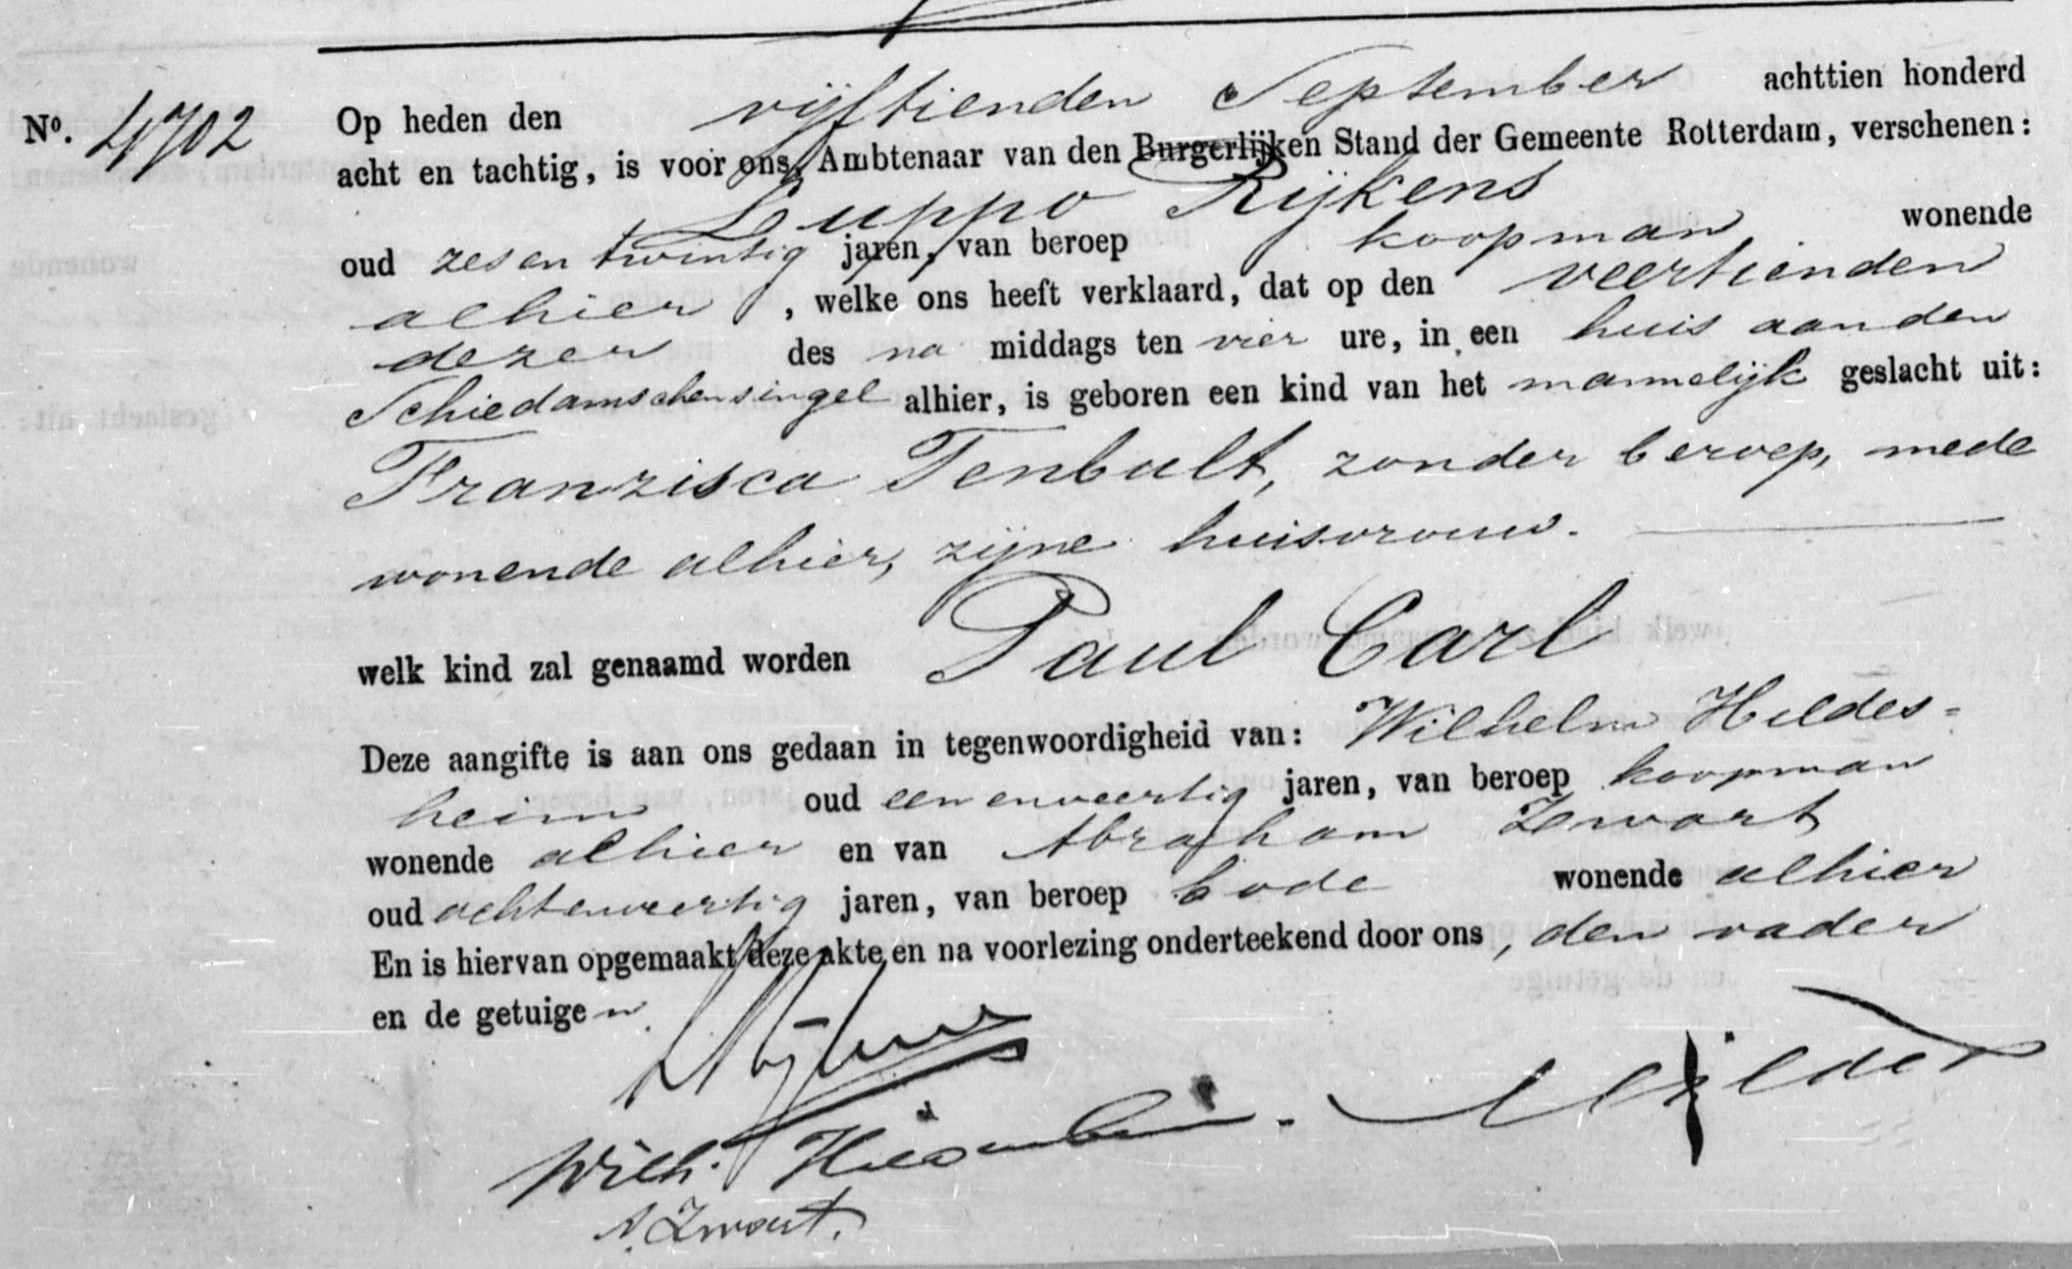 No. 4702
Op heden den vijftienden September achttien honderd
acht en tachtig, is voor ons, Ambtenaar van den Burgerlijken Stand der Gemeente Rotterdam, verschenen:
Luppo Rijkens
oud zesentwintig jaren, van beroep koopman wonende
alhier, welke ons heeft verklaard, dat op den veertienden
dezer des na middags ten vier ure, in een huis aan den
Schiedamschensingel alhier, is geboren een kind van het mannelijk geslacht uit:
Franzisca Tenbult, zonder beroep, mede
wonende alhier, zijne huisvrouw.
welk kind zal genaamd worden Paul Carl
Deze aangifte is aan ons gedaan in tegenwoordigheid van: Wilhelm Hildes=
heim oud eenenveertig jaren, van beroep koopman
wonende alhier en van Abraham Zwart
oud achtenveertig jaren, van beroep bode wonende alhier
En is hiervan opgemaakt deze akte en na voorlezing onderteekend door ons, den vader
en de getuigen.
L Rijkens
Wilh. Hildesheim.
A. Zwart.